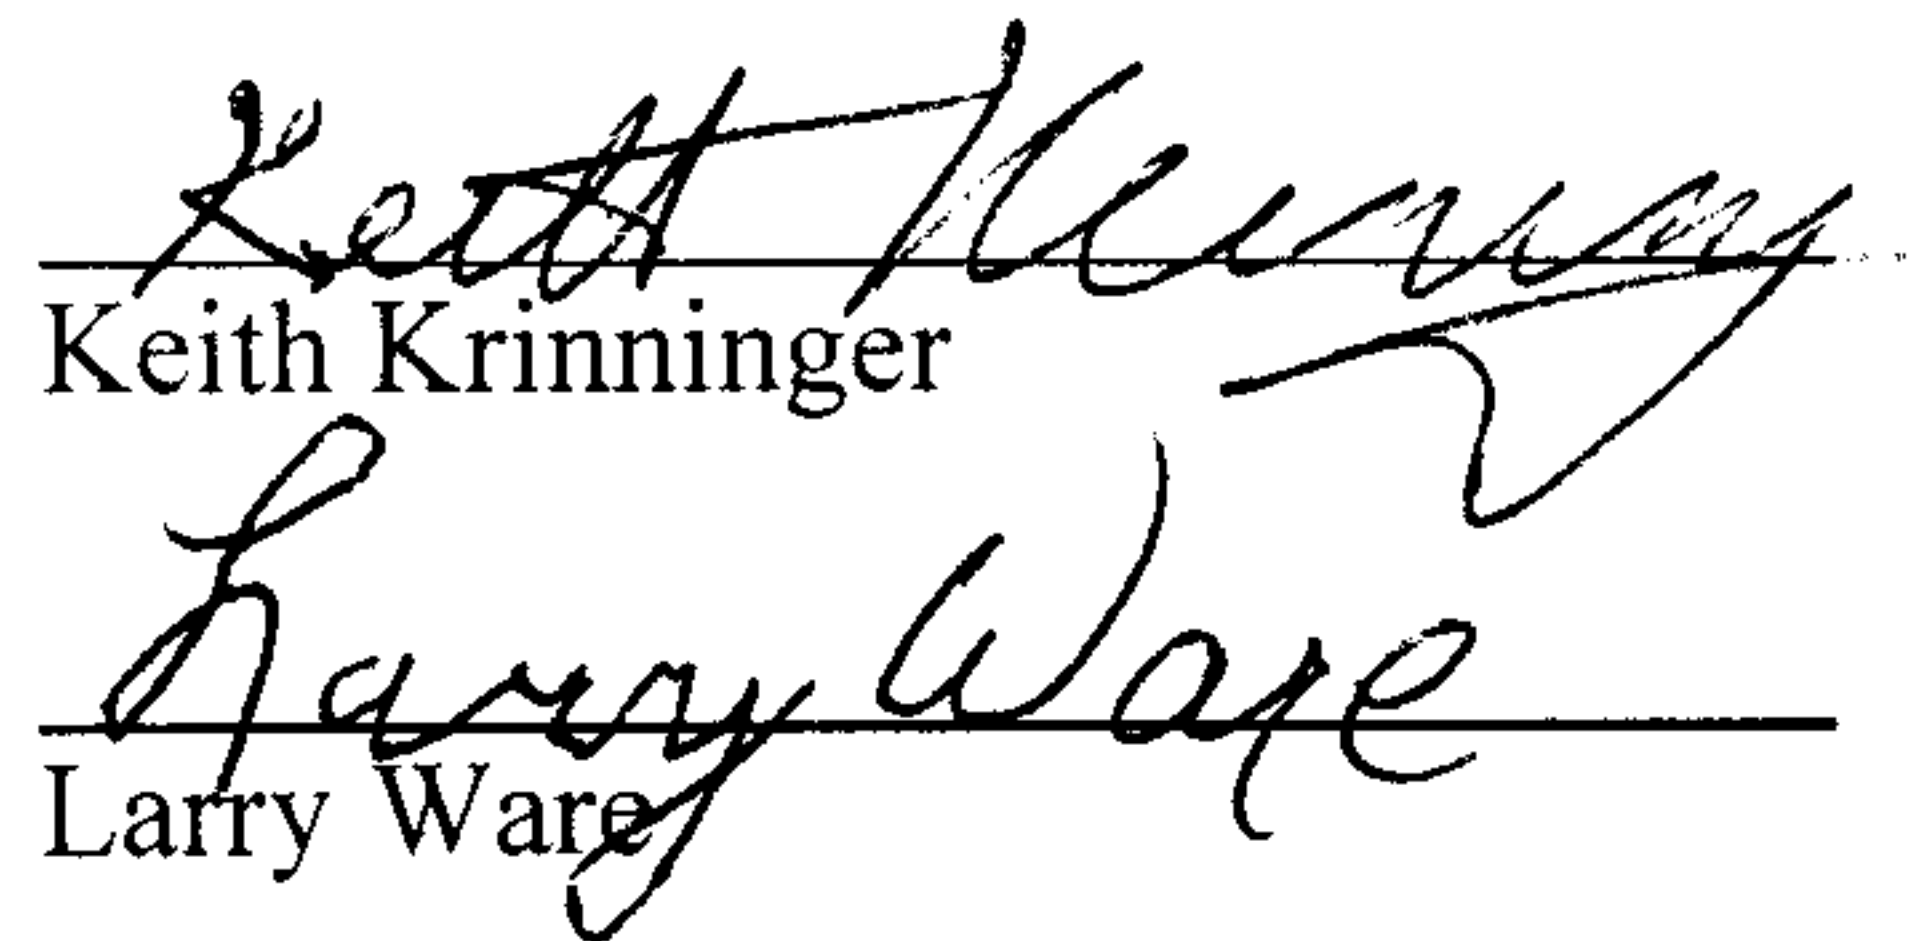 Keith Krinninger
Keith Krinninger
Larry Ware
Larry Ware